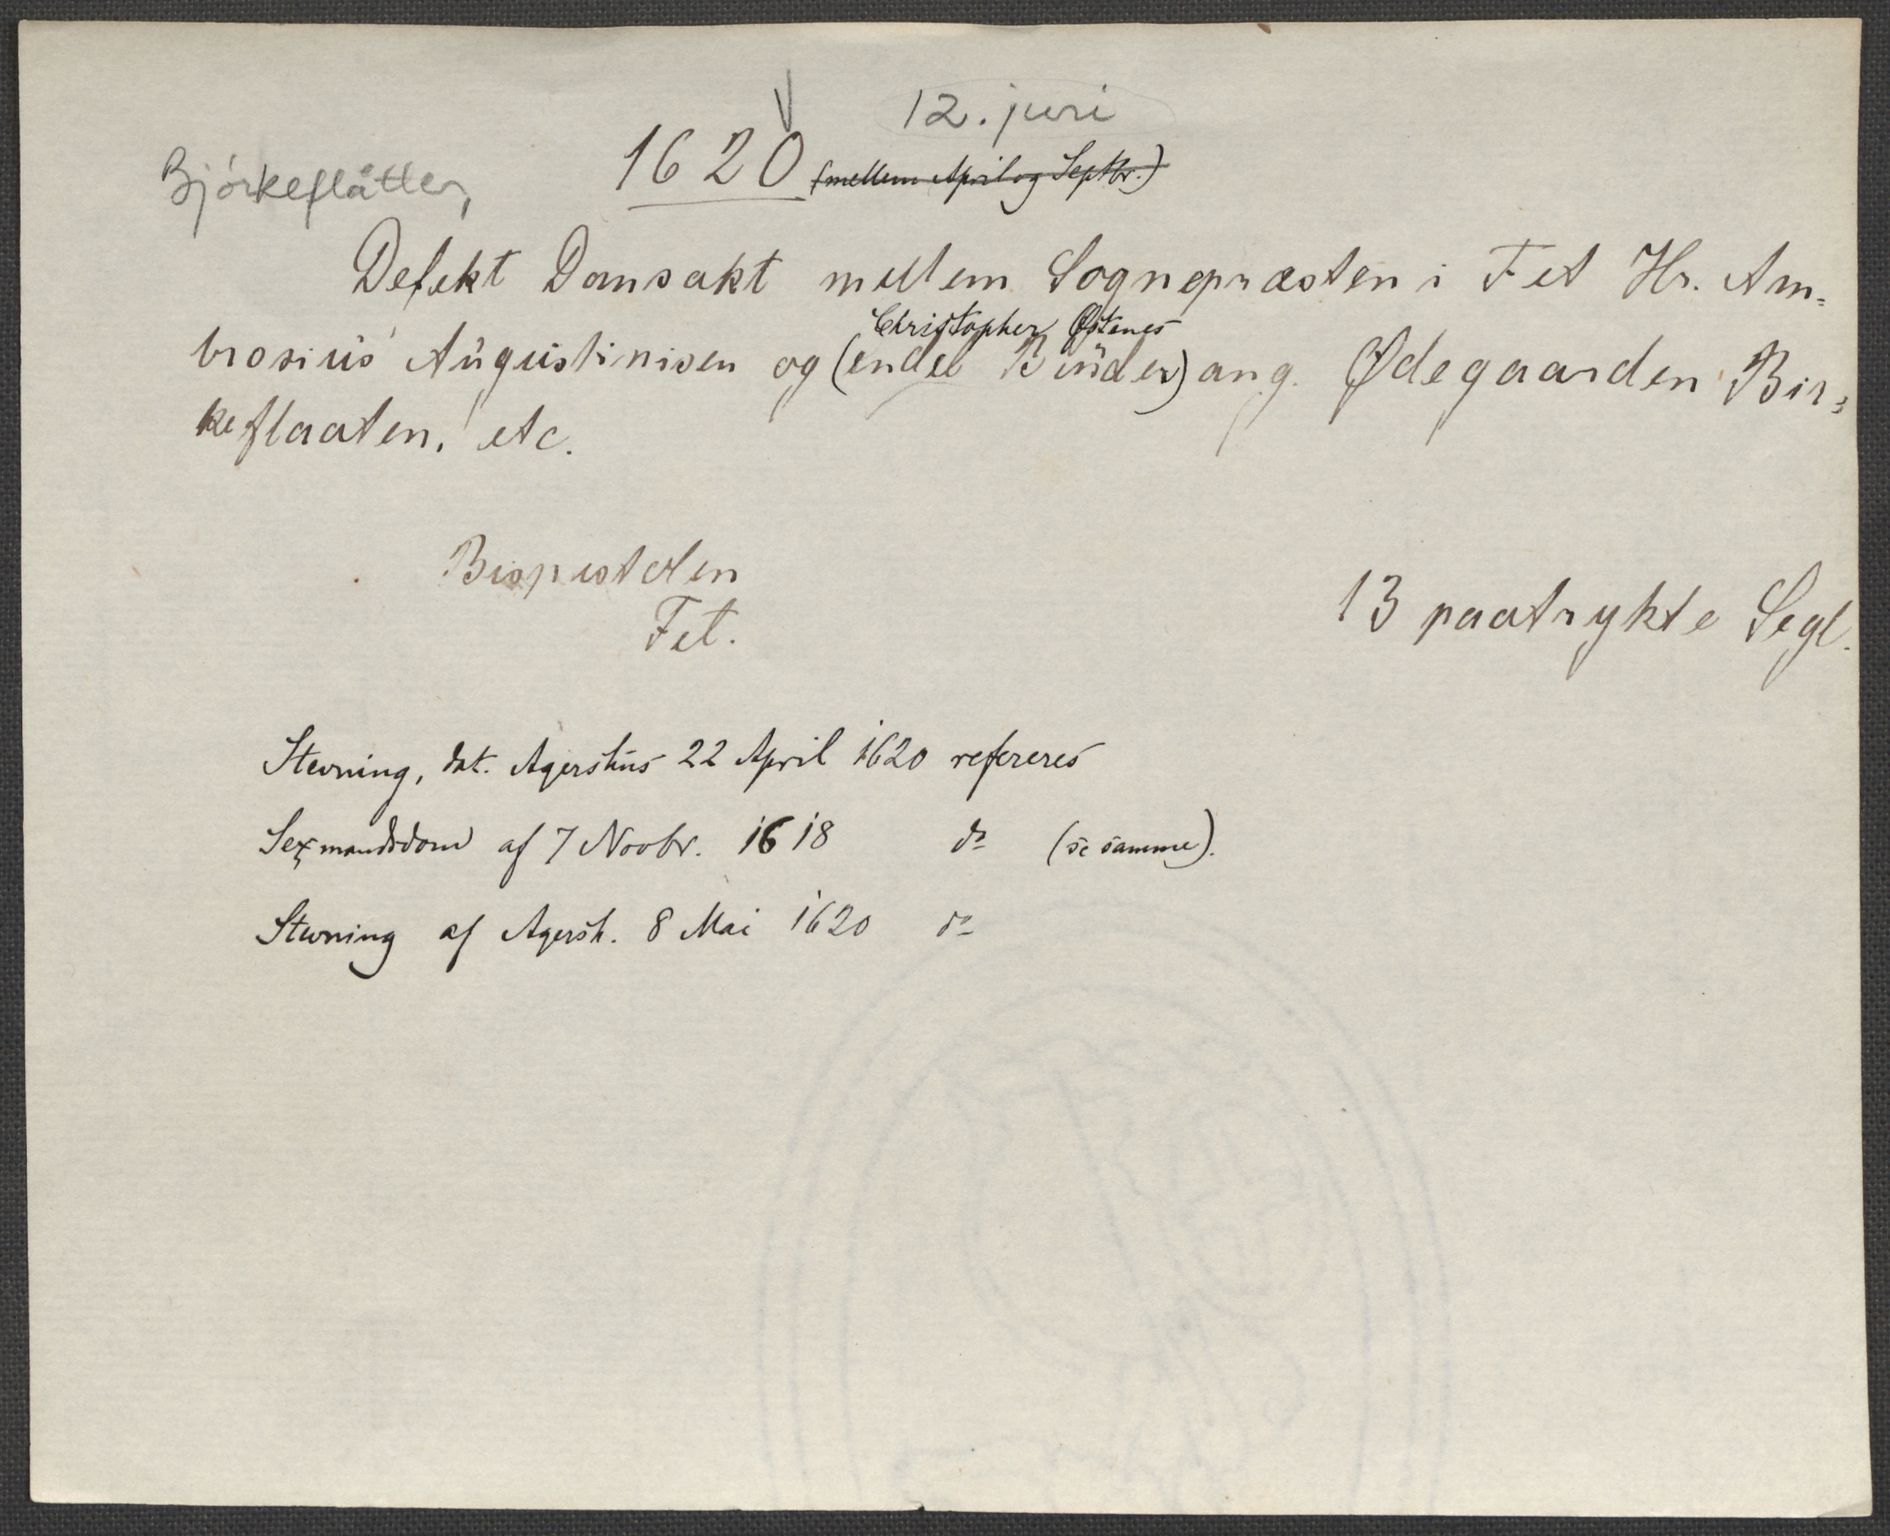 12. juni
Bjórkeflåtten,
1620 (mellem April og Septbr.)
Defekt Domsakt mellem Sognepræsten i Fet Hr. Am=
Christopher Østenes
brosius Augustinisen og (endel Bønder) ang. Ødegaarden Bir=
keflaaten, etc.
Bispestolen
Fet.
13 paatrykte Segl.
Stevning, dat. Agershus 22 April 1620 refereres
Sexmandsdom af 7 Novbr. 1618 do (se samme).
Stevning af Agersh. 8 Mai 1620 do